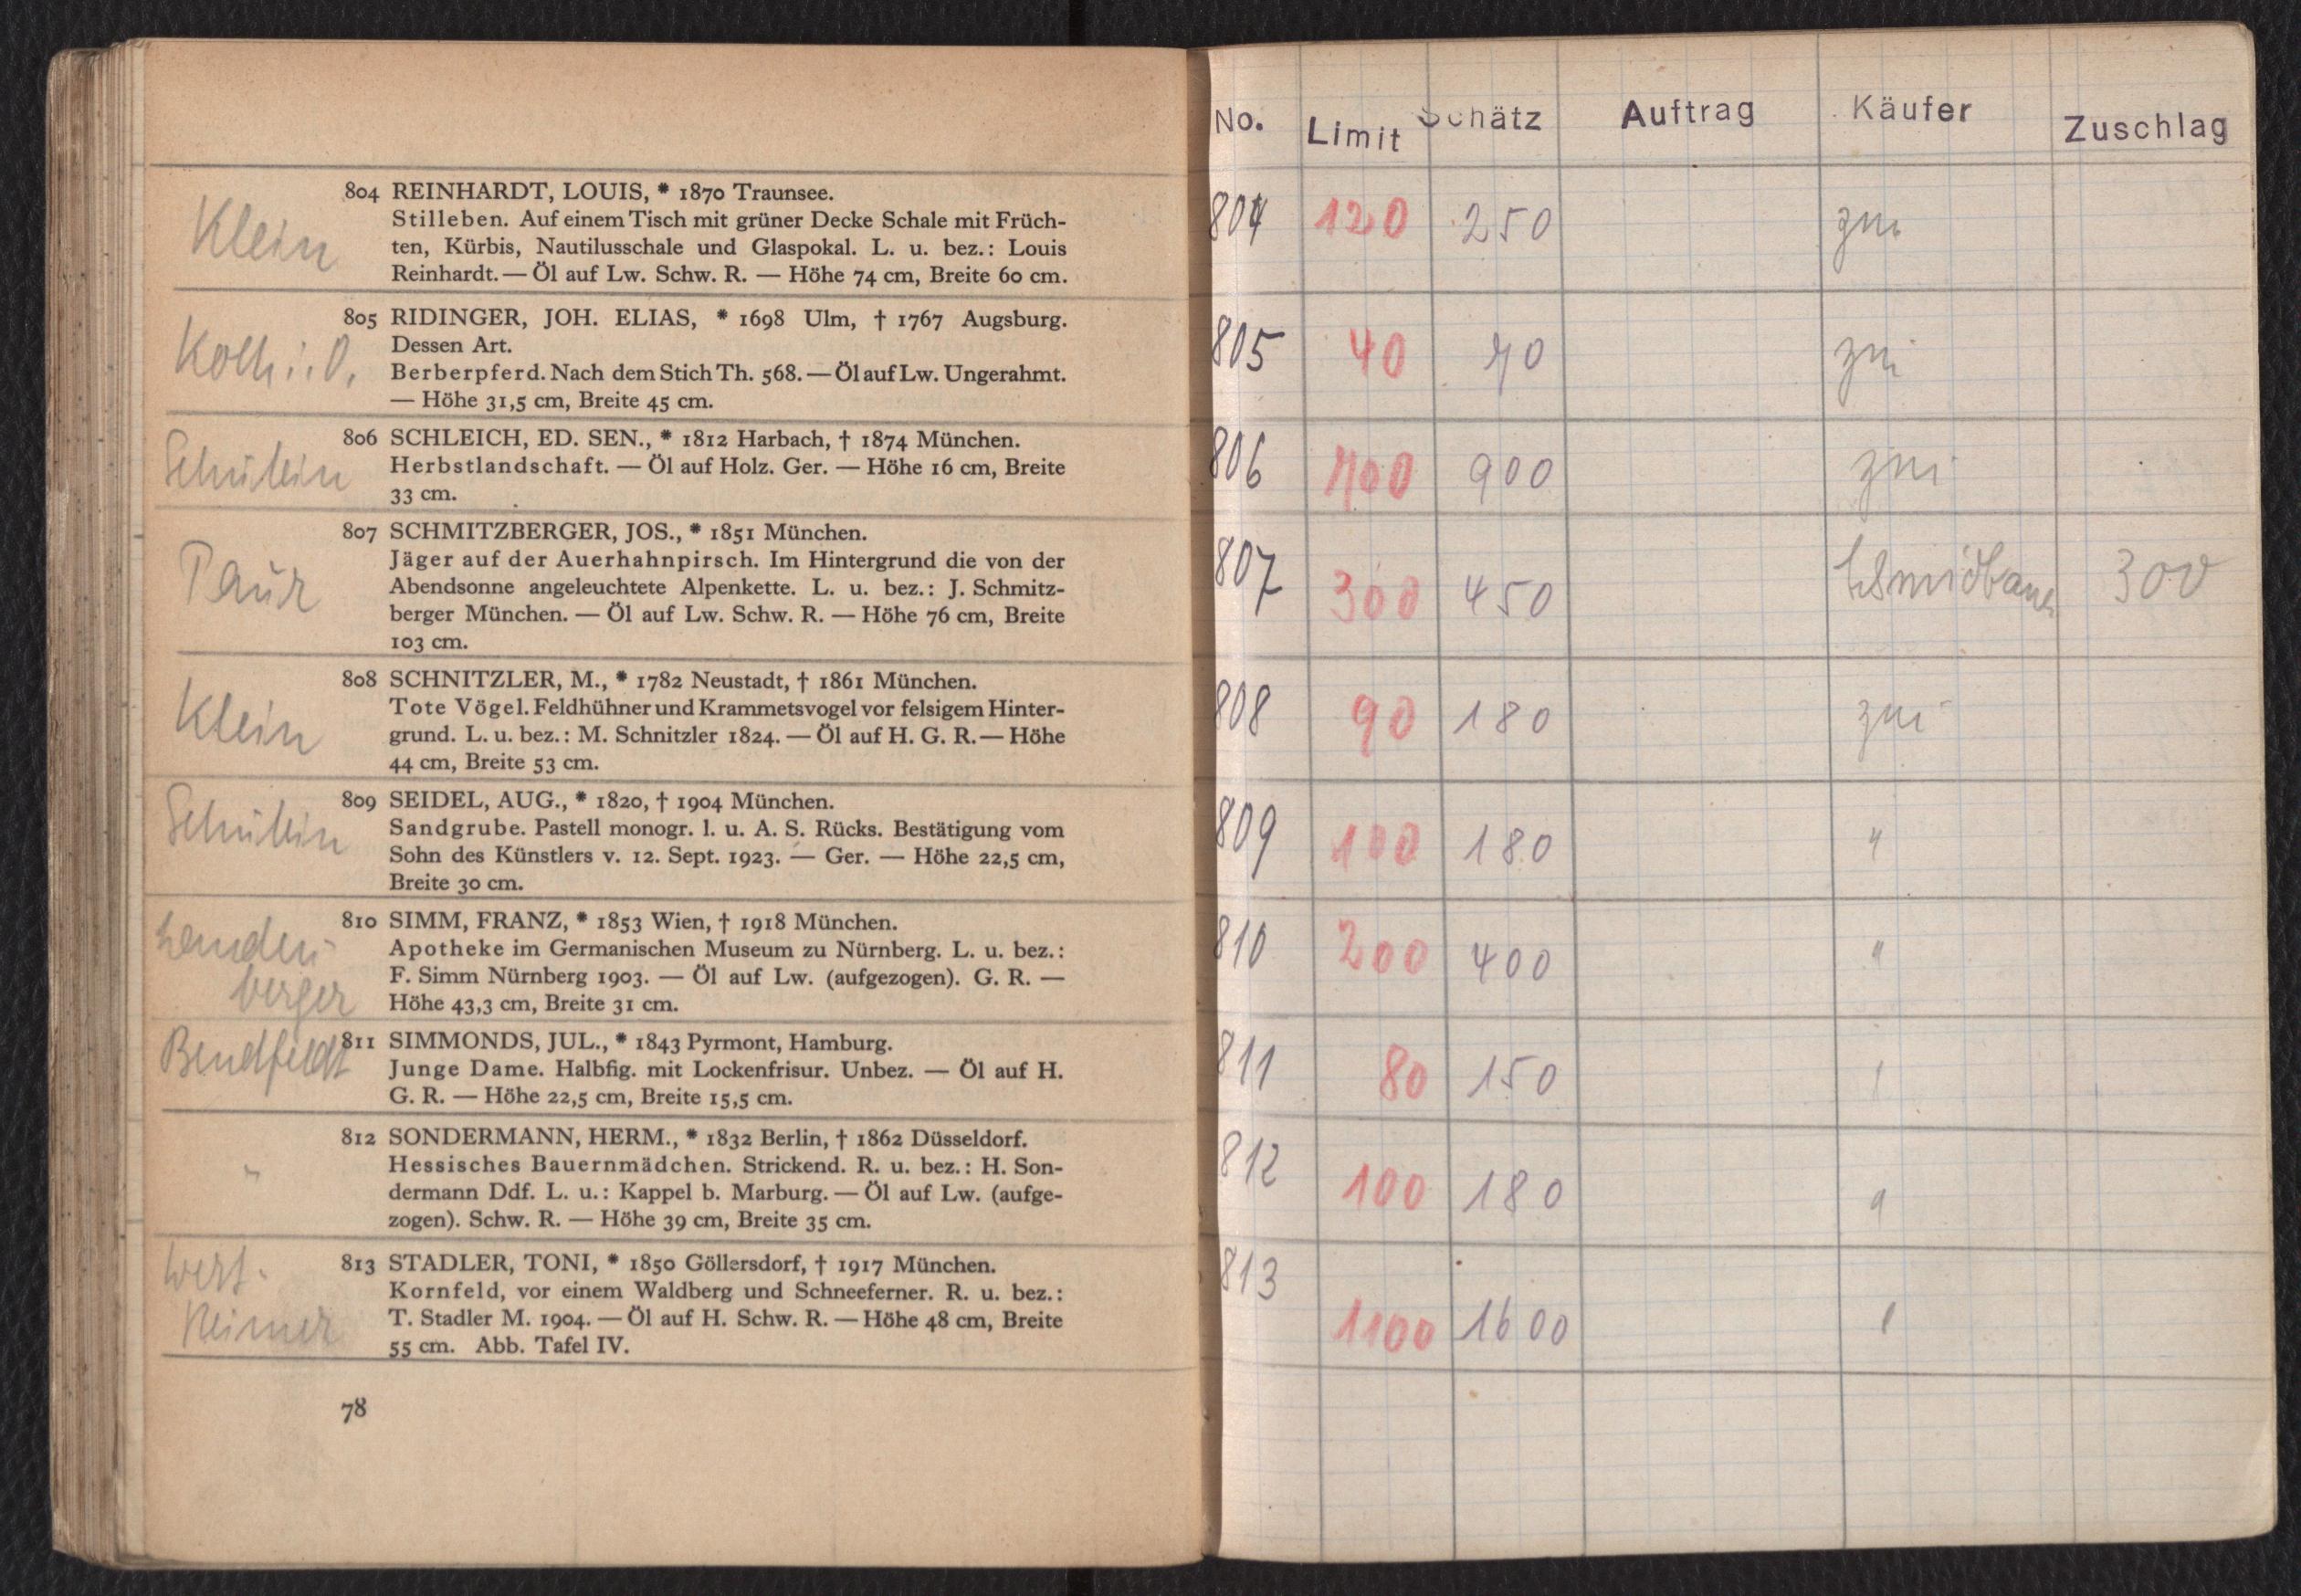 Klein
804 REINHARDT, LOUIS, * 1870 Traunsee.
Stilleben. Auf einem Tisch mit grüner Decke Schale mit Früch-
ten, Kürbis, Nautilusschale und Glaspokal. L. u. bez.: Louis
Reinhardt. — Öl auf Lw. Schw. R. — Höhe 74 cm, Breite 60 cm.
805 RIDINGER, JOH. ELIAS, * 1698 Ulm, † 1767 Augsburg.
Dessen Art.
Berberpferd. Nach dem Stich Th. 568. — Öl auf Lw. Ungerahmt.
— Höhe 31,5 cm, Breite 45 cm.
Schülein
806 SCHLEICH, ED. SEN., * 1812 Harbach, † 1874 München.
Herbstlandschaft. — Öl auf Holz. Ger. — Höhe 16 cm, Breite
33 cm.
Paur
807 SCHMITZBERGER, JOS., * 1851 München.
Jäger auf der Auerhahnpirsch. Im Hintergrund die von der
Abendsonne angeleuchtete Alpenkette. L. u. bez.: J. Schmitz-
berger München. — Öl auf Lw. Schw. R. — Höhe 76 cm, Breite
103 cm.
Klein
808 SCHNITZLER, M., * 1782 Neustadt, † 1861 München.
Tote Vögel. Feldhühner und Krammetsvogel vor felsigem Hinter-
grund. L. u. bez.: M. Schnitzler 1824. — Öl auf H. G. R. — Höhe
44 cm, Breite 53 cm.
Schülein
809 SEIDEL, AUG., * 1820, † 1904 München.
Sandgrube. Pastell monogr. l. u. A. S. Rücks. Bestätigung vom
Sohn des Künstlers v. 12. Sept. 1923. — Ger. — Höhe 22,5 cm,
Breite 30 cm.
berger
810 SIMM, FRANZ, * 1853 Wien, † 1918 München.
Apotheke im Germanischen Museum zu Nürnberg. L. u. bez.:
F. Simm Nürnberg 1903. — Öl auf Lw. (aufgezogen). G. R. —
Höhe 43,3 cm, Breite 31 cm.
Bendfeldt
811 SIMMONDS, JUL., * 1843 Pyrmont, Hamburg.
Junge Dame. Halbfig. mit Lockenfrisur. Unbez. — Öl auf H.
G. R. — Höhe 22,5 cm, Breite 15,5 cm.
"
812 SONDERMANN, HERM., * 1832 Berlin, † 1862 Düsseldorf.
Hessisches Bauernmädchen. Strickend. R. u. bez.: H. Son-
dermann Ddf. L. u.: Kappel b. Marburg. — Öl auf Lw. (aufge-
zogen). Schw. R. — Höhe 39 cm, Breite 35 cm.
West-
Reimer
813 STADLER, TONI, * 1850 Göllersdorf, † 1917 München.
Kornfeld, vor einem Waldberg und Schneeferner. R. u. bez.:
T. Stadler M. 1904. — Öl auf H. Schw. R. — Höhe 48 cm, Breite
55 cm. Abb. Tafel IV.
78
No. Limit Schätz Auftrag Käufer Zuschlag
804 120 250
805 40 70
806 700 900
807 300 450 300
808 90 180
809 100 180 "
810 200 400 "
811 80 150
812 100 180 "
813 1100 1600